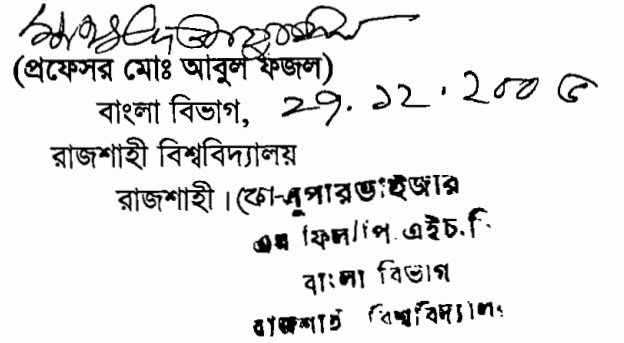 (প্রফেসর মোঃ আবুল ফজল)
বাংলা বিভাগ, 29.১২.২০০৫
রাজশাহী বিশ্ববিদ্যালয়
রাজশাহী। কো-সুপারভাইজার
এম ফিল/পি.এইচ.ডি
বাংলা বিভাগ
রাজশাহী বিশ্ববিদ্যালয়